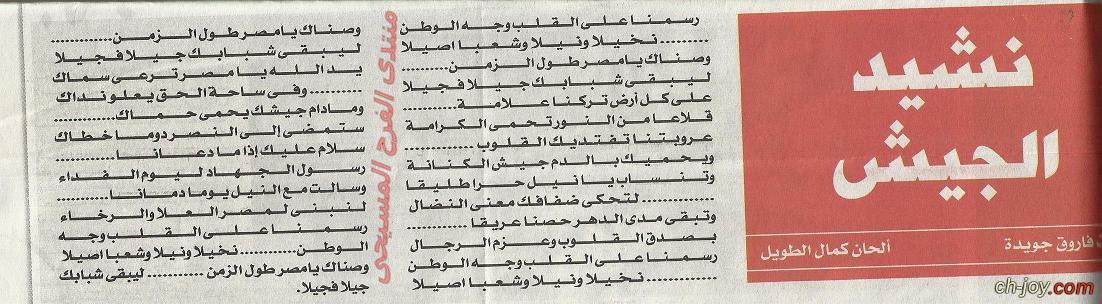 نشيد
الجيش
فاروق جويدة
ألحان كمال الطويل
رسمنا على القلب وجه الوطن
.......... نخيلا ونيلا وشعبا اصيلا
وصناك يا مصر طول الزمن..........
ليبقى شبابك جيلا فجيلا
على كل أرض تركنا علامة..........
قلاعا من النور تحمى الكرامة
عروبتنا تفتديك القلوب ..........
ويحميك بالدم جيش الكنانة
وتنساب يا نيل حرا طليقا
.......... لتحكى ضفافك معنى النضال
وتبقى مدى الدهر حصنا عريقا ..........
بصدق القلوب وعزم الرجال
رسمنا على القلب وجه الوطن
.......... نخيلا ونيلا وشعبا اصيلا
منتدى الفرح المسيحى
وصناك يا مصر طول الزمن..........
ليبقى شبابك جيلا فجيلا
يد الله يا مصر ترعى سماك
.......... وفى ساحة الحق يعلو نداك
ومادام جيشك يحمى حماك..........
ستمضى إلى النصر دوما خطاك
سلام عليك إذا ما دعانا..........
رسول الجهاد ليوم الفداء
وسالت مع النيل يوما دمانا..........
لنبنى لمصر العلا والرخاء
رسمنا على القلب وجه
الوطن.......... نخيلا ونيلا وشعبا اصيلا
وصناك يا مصر طول الزمن .......... ليبقى شبابك
جيلا فجيلا.
ch-joy.com